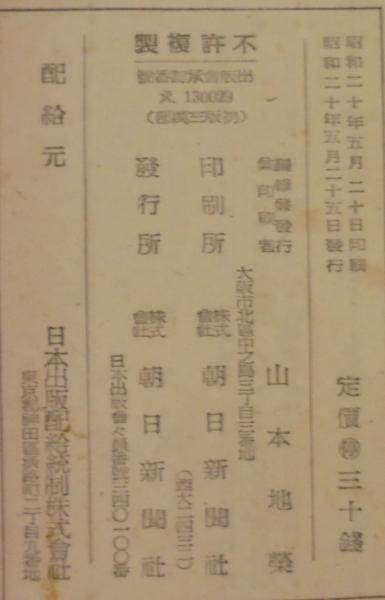 昭和二十年五月二十日印刷
昭和二十年五月二十五日發行
定價㊕三十錢
編輯兼發行
兼印刷者
山本地榮
大阪市北區中之島三丁目三番地
印刷所
株式會社
朝日新聞社
(西大二四三二)
發行所
株式會社
朝日新聞社
日本出版會々員番號三四〇一〇〇番
不許複製
出版會承認番號
え 130029
(初版三萬部)
配給元
日本出版配給統制株式會社
東京都神田區淡路町二丁目九番地